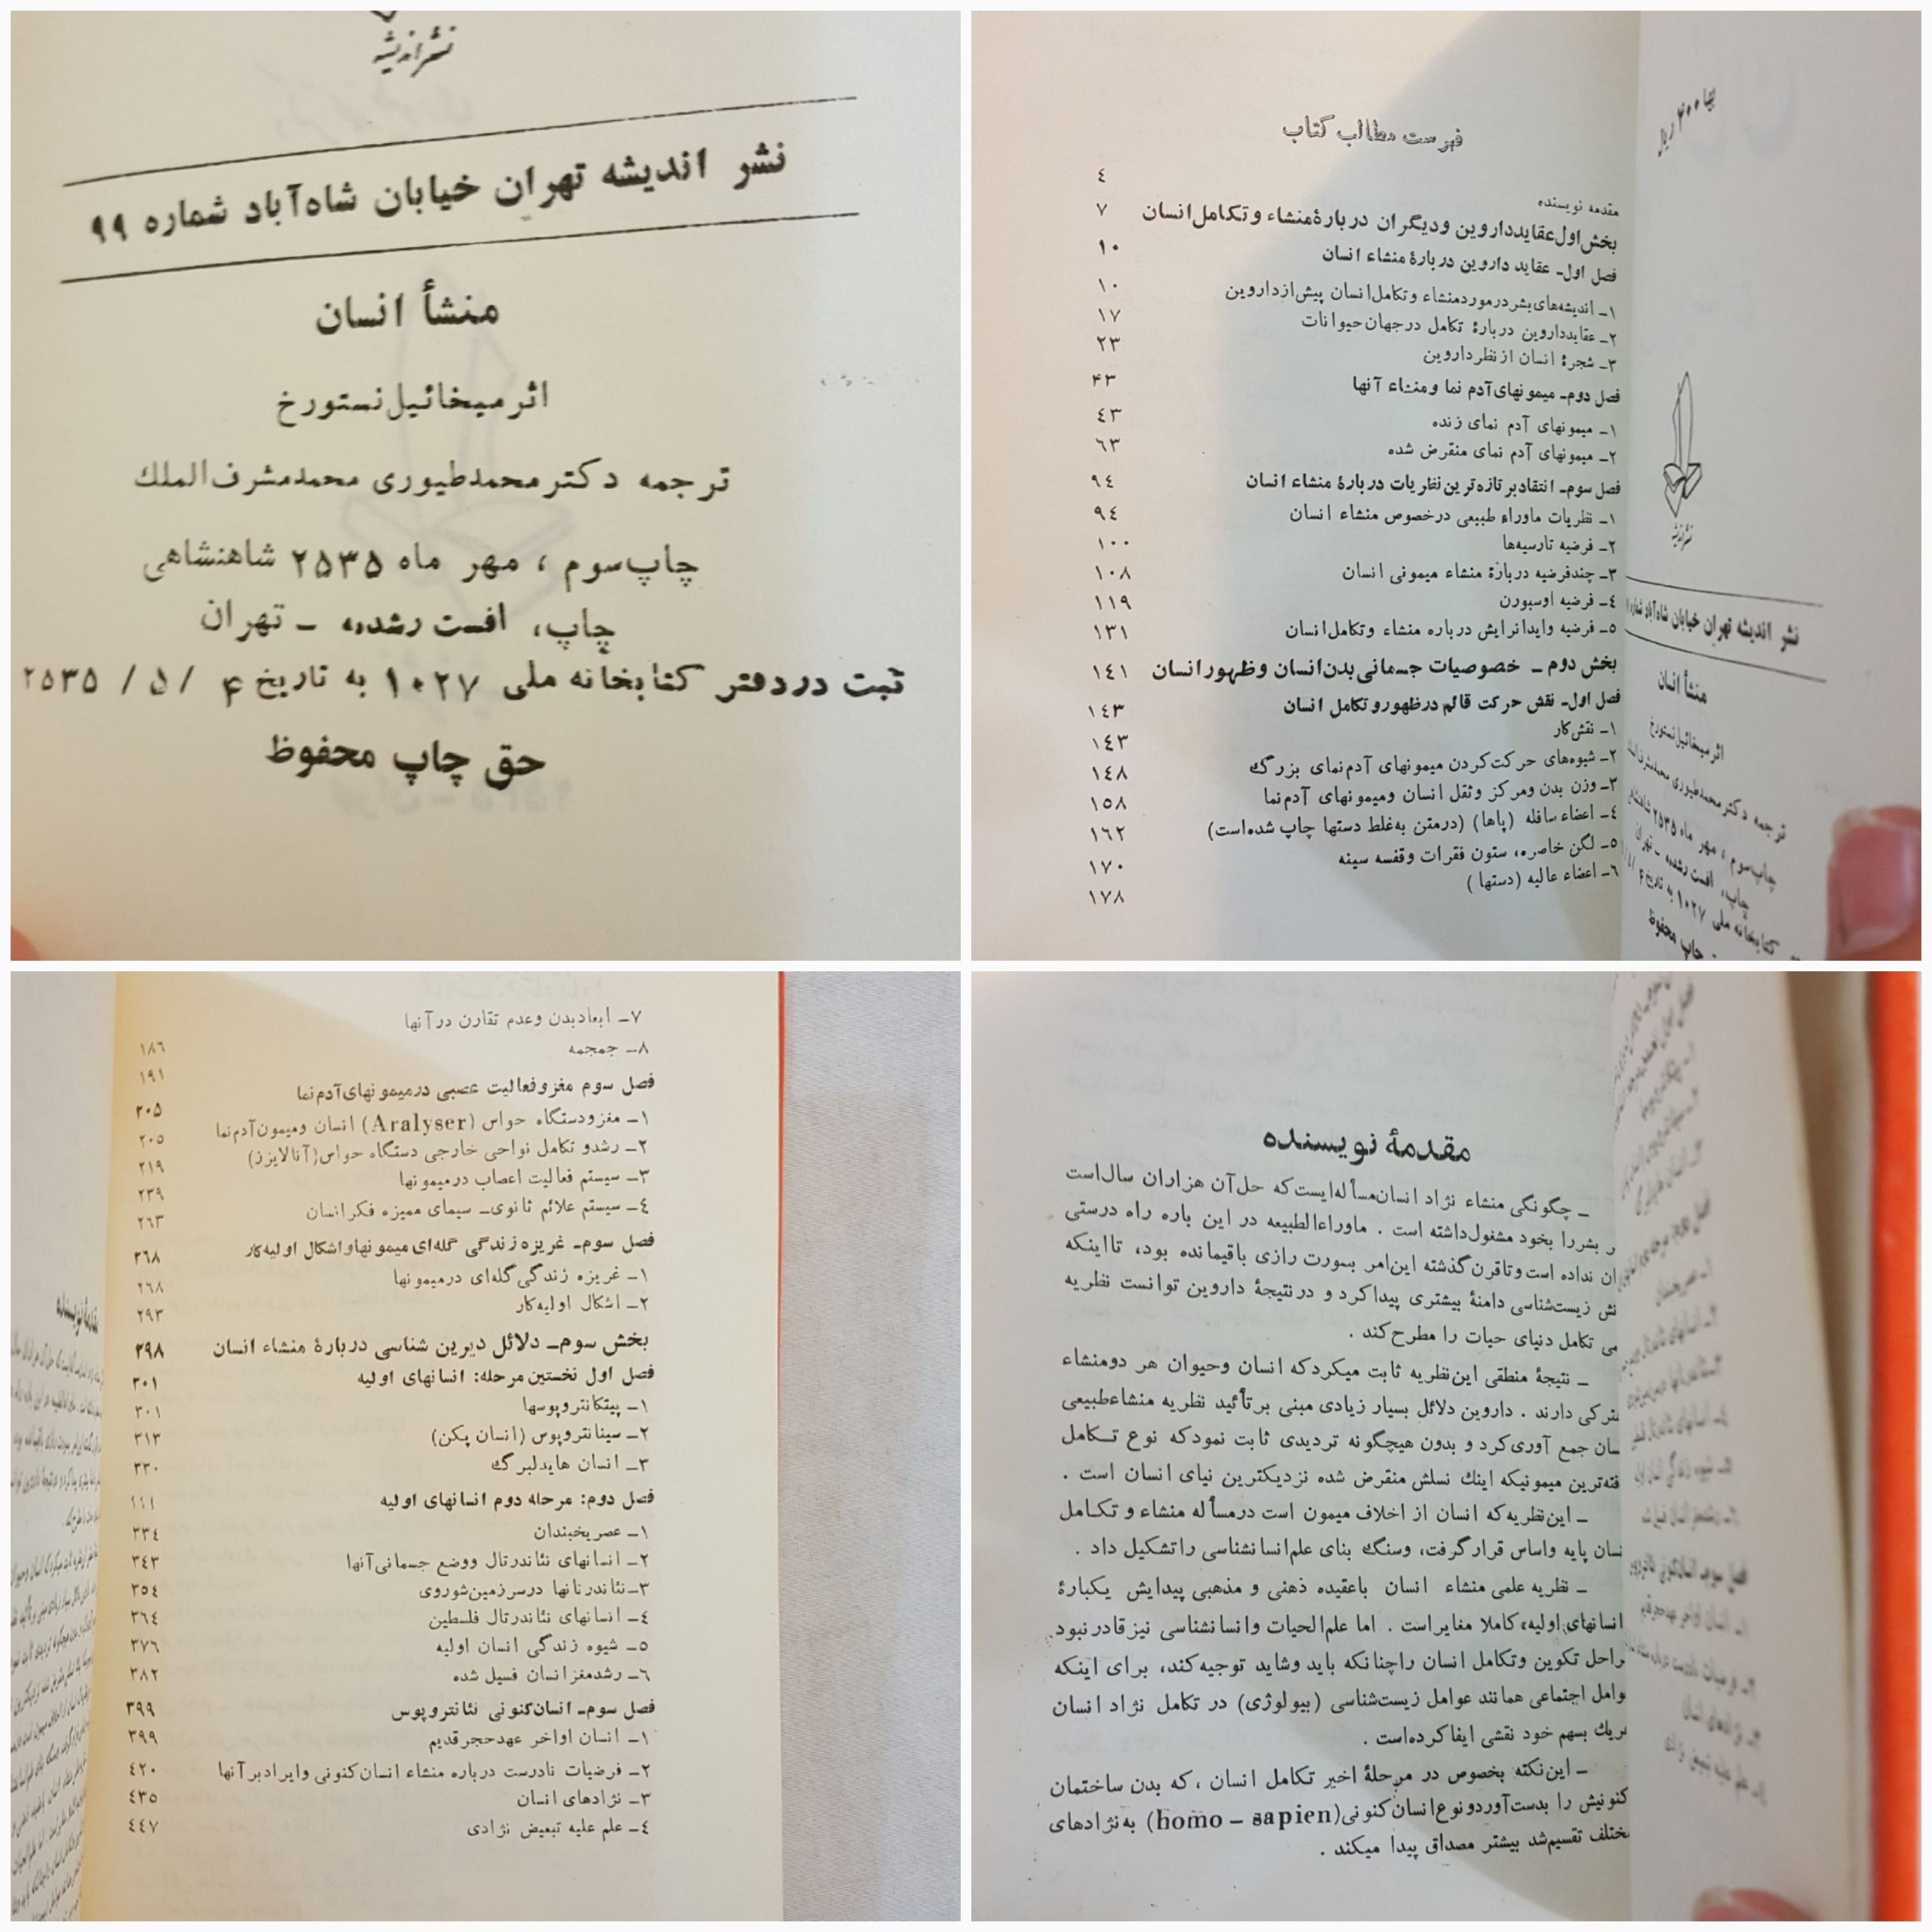 نشراندیشه
نشر اندیشه تهران خیابان شاه‌آباد شماره ۹۹
منشأ انسان
اثر میخائیل نستورخ
ترجمه دکتر محمد طیوری محمد مشرف‌الملك
چاپ سوم ، مهر ماه ۲۵۳۵ شاهنشاهی
چاپ، افست رشدیه – تهران
ثبت در دفتر کتابخانه ملی ۱۰۲۷ به تاریخ ۴ / ۵ / ۲۵۳۵
حق چاپ محفوظ
فهرست مطالب کتاب
مقدمه نویسنده ٤
بخش اول عقاید داروین و دیگران دربارهٔ منشاء و تکامل انسان ۷
فصل اول– عقاید داروین دربارهٔ منشاء انسان ۱۰
۱– اندیشه‌های بشر در مورد منشاء و تکامل انسان پیش از داروین ۱۰
۲– عقاید داروین دربارهٔ تکامل در جهان حیوانات ۱۷
۳– شجرهٔ انسان از نظر داروین ۲۳
فصل دوم– میمونهای آدم نما و منشاء آنها ۴۳
۱– میمونهای آدم نمای زنده ٤۳
۲– میمونهای آدم نمای منقرض شده ٦۳
فصل سوم– انتقاد بر تازه‌ترین نظریات دربارهٔ منشاء انسان ۹٤
۱– نظریات ماوراء طبیعی در خصوص منشاء انسان ۹٤
۲– فرضیه تارسیه‌ها ۱۰۰
۳– چند فرضیه دربارهٔ منشاء میمونی انسان ۱۰۸
٤– فرضیه اوسبورن ۱۱۹
٥– فرضیه وایدانرایش درباره منشاء و تکامل انسان ۱۳۱
بخش دوم – خصوصیات جسمانی بدن انسان و ظهور انسان ۱٤۱
فصل اول– نقش حرکت قائم در ظهور و تکامل انسان ۱٤۳
۱– نقش کار ۱٤۳
۲– شیوه‌های حرکت کردن میمونهای آدم نمای بزرگ ۱٤۸
۳– وزن بدن ومرکز وثقل انسان ومیمونهای آدم نما ۱٥۸
٤– اعضاء سافله (پاها) (در متن به غلط دستها چاپ شده است) ۱٦۲
٥– لگن خاصره، ستون فقرات و قفسه سینه ۱۷۰
٦– اعضاء عالیه (دستها) ۱۷۸
بها ۴۰۰ ریال
نشراندیشه
نشر اندیشه تهران خیابان شاه‌آباد شماره
منشأ انسان
اثر میخائیل نستورخ
ترجمه دکتر محمد طیوری محمد مشرف‌الملك
چاپ سوم ، مهر ماه ۲۵۳۵
چاپ، افست رشدیه – تهران
کتابخانه ملی ۱۰۲۷ به تاریخ ۴
چاپ محفوظ
۷– ابعاد بدن وعدم تقارن در آنها ۱۸٦
۸– جمجمه ۱۹۱
فصل سوم مغز و فعالیت عصبی در میمونهای آدم نما ۲۰۵
۱– مغز و دستگاه حواس (Aralyser) انسان ومیمون آدم نما ۲۰٥
۲– رشد و تکامل نواحی خارجی دستگاه حواس (آنالایزر) ۲۱۹
۳– سیستم فعالیت اعصاب در میمونها ۲۳۹
٤– سیستم علائم ثانوی– سیمای ممیزه فکر انسان ۲٦۳
فصل سوم– غریزه زندگی گله‌ای میمونها و اشکال اولیه کار ۲٦۸
۱– غریزه زندگی گله‌ای در میمونها ۲٦۸
۲– اشکال اولیه کار ۲۹۳
بخش سوم– دلائل دیرین شناسی دربارهٔ منشاء انسان ۲۹۸
فصل اول نخستین مرحله: انسانهای اولیه ۳۰۱
۱– پیتکانتروپوسها ۳۰۱
۲– سینانتروپوس (انسان پکن) ۳۱۳
۳– انسان هایدلبرگ ۳۳۰
فصل دوم: مرحله دوم انسانهای اولیه ۱۱۱
۱– عصر یخبندان ۳۳٤
۲– انسانهای نئاندرتال ووضع جسمانی آنها ۳٤۳
۳– نئاندرتالها در سرزمین شوروی ۳٥٤
٤– انسانهای نئاندرتال فلسطین ۳٦٤
٥– شیوه زندگی انسان اولیه ۳۷٦
٦– رشد مغز انسان فسیل شده ۳۸۲
فصل سوم– انسان کنونی نئانتروپوس ۳۹۹
۱– انسان اواخر عهد حجر قدیم ۳۹۹
۲– فرضیات نادرست درباره منشاء انسان کنونی وایراد بر آنها ٤۲۰
۳– نژادهای انسان ٤۳٥
٤– علم علیه تبعیض نژادی ٤٤۷
مقدمهٔ نویسنده
– چگونگی منشاء نژاد انسان مسأله‌ایست که حل آن هزاران سال است
ر بشر را بخود مشغول داشته است . ماوراءالطبیعه در این باره راه درستی
ان نداده است و تا قرن گذشته این امر بصورت رازی باقیمانده بود، تا اینکه
نش زیست‌شناسی دامنهٔ بیشتری پیدا کرد و در نتیجهٔ داروین توانست نظریه
می تکامل دنیای حیات را مطرح کند .
– نتیجهٔ منطقی این نظریه ثابت میکرد که انسان وحیوان هر دو منشاء
شترکی دارند . داروین دلائل بسیار زیادی مبنی بر تأئید نظریه منشاء طبیعی
سان جمع آوری کرد و بدون هیچگونه تردیدی ثابت نمود که نوع تکامل
فته‌ترین میمونیکه اینك نسلش منقرض شده نزدیکترین نیای انسان است .
– این نظریه که انسان از اخلاف میمون است در مسأله منشاء و تکامل
نسان پایه واساس قرار گرفت، وسنگ بنای علم انسانشناسی را تشکیل داد .
– نظریه علمی منشاء انسان با عقیده ذهنی و مذهبی پیدایش یکبارهٔ
انسانهای اولیه، کاملا مغایر است . اما علم‌الحیات وانسانشناسی نیز قادر نبود
راحل تکوین وتکامل انسان را چنانکه باید وشاید توجیه کند، برای اینکه
وامل اجتماعی همانند عوامل زیست‌شناسی (بیولوژی) در تکامل نژاد انسان
ریك بسهم خود نقشی ایفا کرده است .
– این نکته بخصوص در مرحلهٔ اخیر تکامل انسان ، که بدن ساختمان
کنونیش را بدست آورد و نوع انسان کنونی (homo – sapien) به نژادهای
ختلف تقسیم شد بیشتر مصداق پیدا میکند .